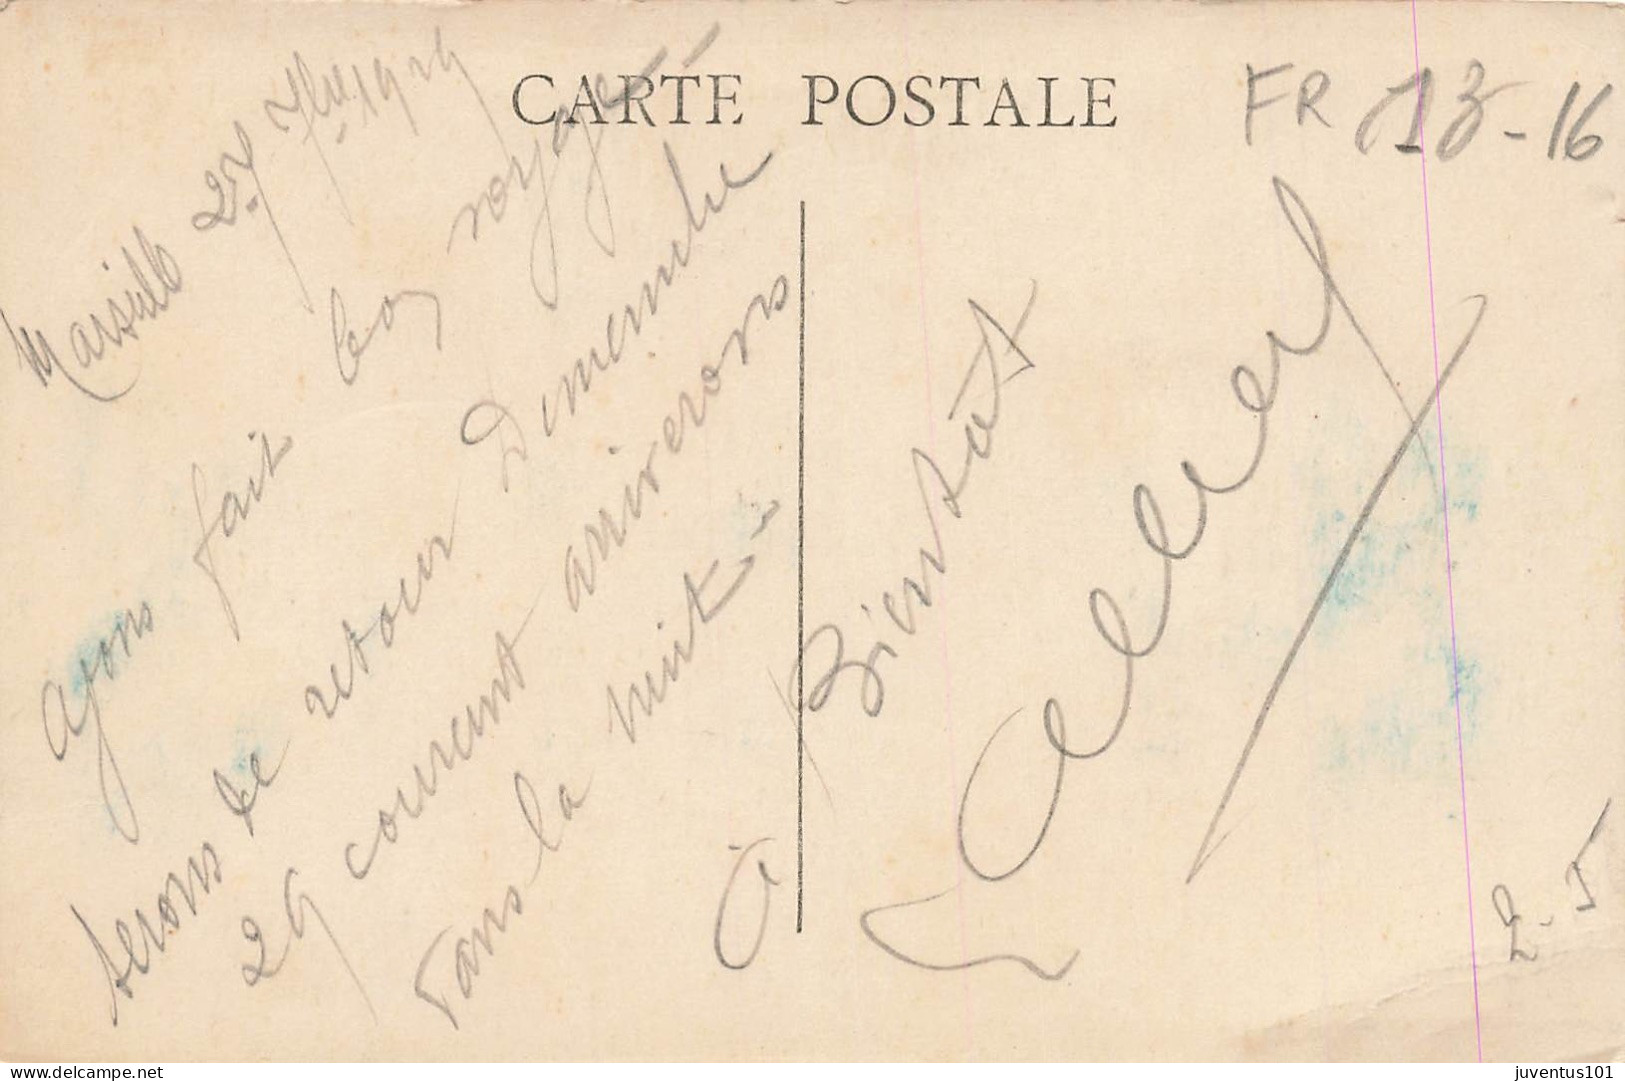 CARTE POSTALE
FR 13-16
Marseille 27 7bre 1929
ayons fait bon voyage
serons de retour Dimenche
29 courent arriverons
dans la nuit
à Bientôt
2.5
www.delcampe.net
juventus101